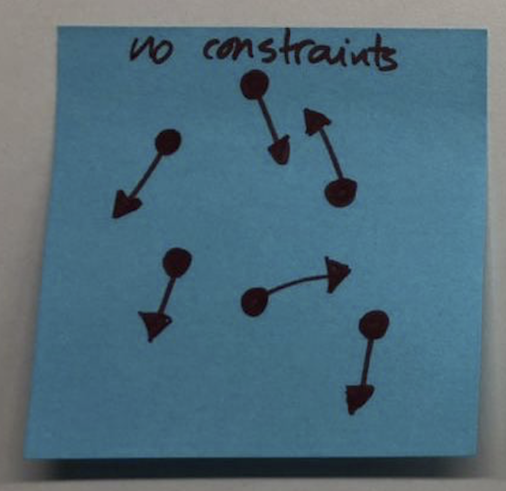 no constraints